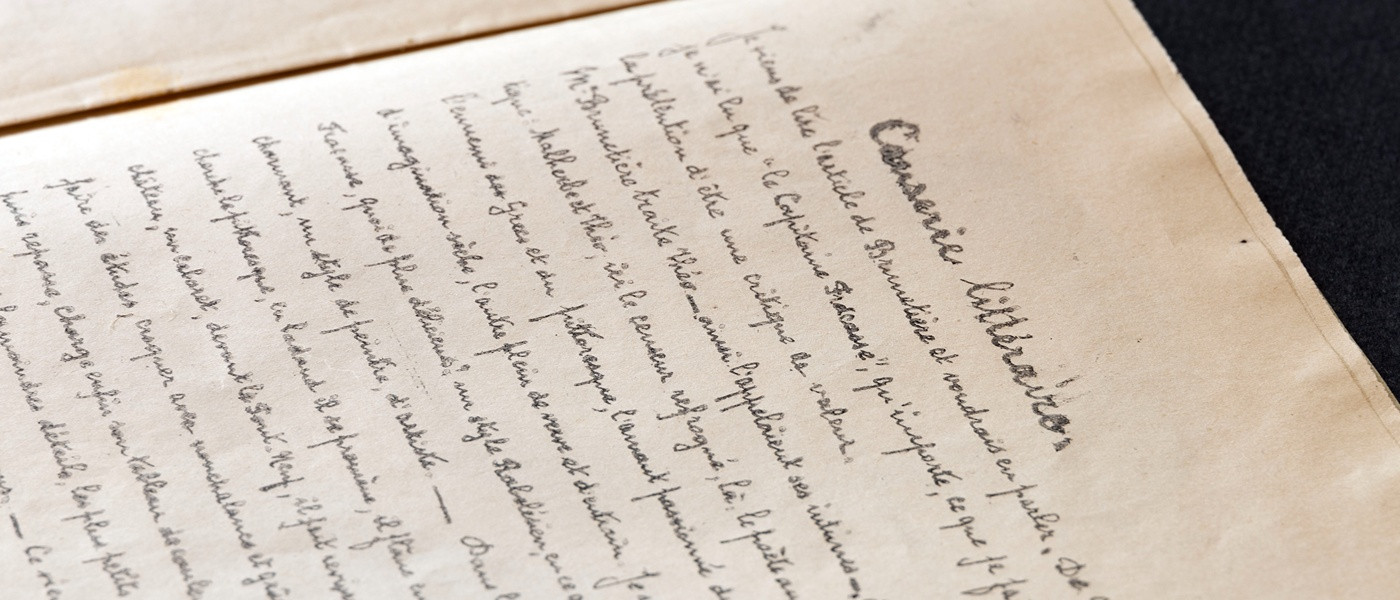 Causeries littéraires
Je viens de lire l'article de Brunetière et voudrais en parler. De
je n'ai lu que "le Capitaine Fracasse", qu'importe, ce que je
la prétention d'être une critique de valeur.
Mr Brunetière traite Théo — ainsi l'appelaient ses intimes —
tique: Malherbe et Théo, ici le censeur refrogné, là: le poète
l'ennemi des Grecs et du pittoresque, l'amant passionné
d'imagination sèche, l'autre plein de verve et d'entrain. Je
Fracasse, quoi de plus délicieux? un style Rabelaisien, en
charmant, un style de peintre, d'artiste. — Dans
cherche le pittoresque, en badaud il se promène, il flâne
château, un cabaret, devant le Pont-Neuf, il fait
faire des études, croquer avec nonchalance et
puis reposé, charge enfin son tableau de
la moindres détails, les plus petits
— Ce